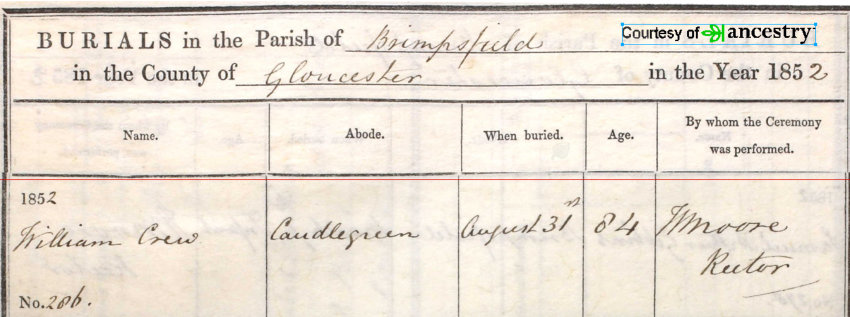 Courtesy of ancestry
BURIALS in the Parish of Brimpsfield
in the County of Gloucester in the Year 1852
Name. Abode. When buried. Age. By whom the Ceremony
was performed.
1852
William Crew Caudlegreen August 31st 84 Moore
Rector
No. 286.